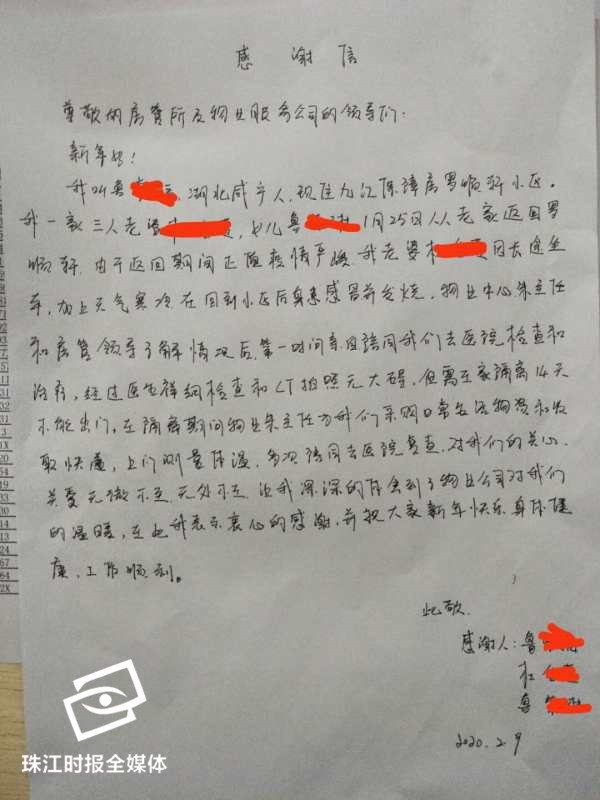 感谢信
尊敬的房管所及物业服务公司的领导们:
新年好!
我叫鲁 湖北咸宁人,现住九江保障房罗顺轩小区。
我一家三人老婆 ,女儿鲁 1月25日从老家返回罗
顺轩.由于返回期间正值疫情严峻.我老婆杜 因长途坐
车,加上天气寒冷在回到小区后身患感冒并发烧.物业中心朱主任
和房管领导了解情况后,第一时间亲自陪同我们去医院检查和
治疗,经过医生详细检查和CT拍照无大碍,但需在家隔离14天
不能出门,在隔离期间物业朱主任为我们采购日常生活物资和收
取快递,上门测量体温,多次陪同去医院复查,对我们的关心.
关爱无微不至,无处不在,让我深深的体会到了物业公司对我们
的温暖,在此我表示衷心的感谢,并祝大家新年快乐身体健
康,工作顺利。
此致.
感谢人:鲁
杜
鲁
2020.2.9
珠江时报全媒体